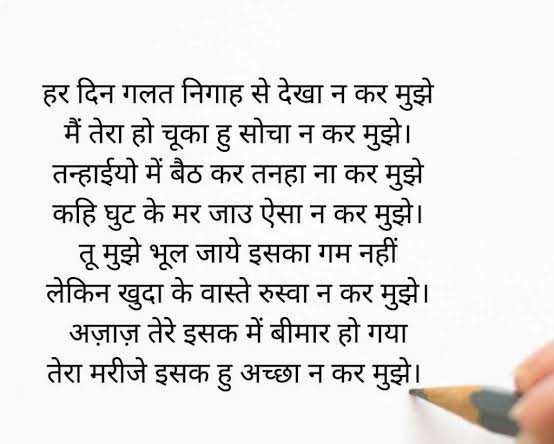 हर दिन गलत निगाह से देखा न कर मुझे
मैं तेरा हो चूका हु सोचा न कर मुझे।
तन्हाईयो में बैठ कर तनहा ना कर मुझे
कहि घुट के मर जाउ ऐसा न कर मुझे।
तू मुझे भूल जाये इसका गम नहीं
लेकिन खुदा के वास्ते रुस्वा न कर मुझे।
अज़ाज़ तेरे इसक में बीमार हो गया
तेरा मरीजे इसक हु अच्छा न कर मुझे।